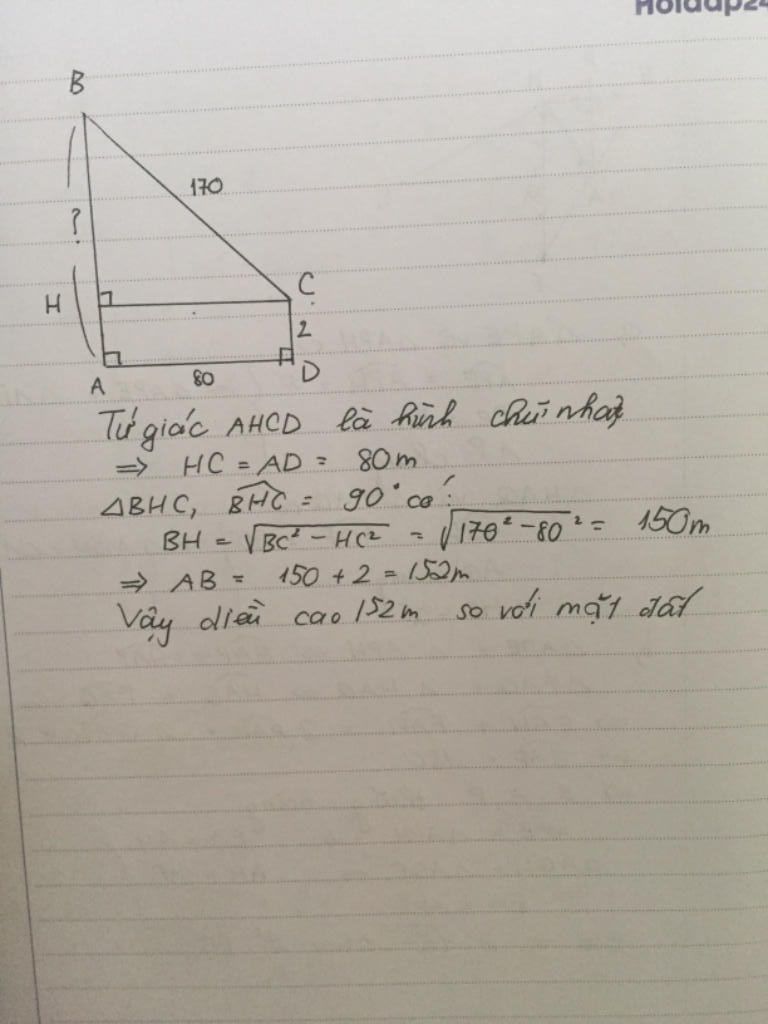 Hoidap24
B
170
?
C
H
2
A
80
D
Tứ giác AHCD là hình chữ nhật
⇒ HC = AD = 80m
△BHC, \widehat{BHC} = 90° có:
BH = √(BC² − HC²) = √(170² − 80²) = 150m
⇒ AB = 150 + 2 = 152m
Vậy diều cao 152m so với mặt đất